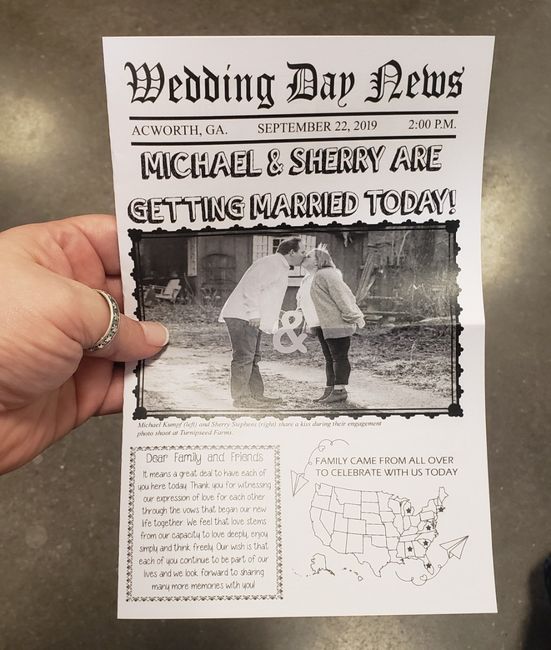 Wedding Day News
ACWORTH, GA. SEPTEMBER 22, 2019 2:00 P.M.
MICHAEL & SHERRY ARE
GETTING MARRIED TODAY!
&
Michael Kumpf (left) and Sherry Stephens (right) share a kiss during their engagement
photo shoot at Turnipseed Farms.
Dear Family and Friends
It means a great deal to have each of
you here today. Thank you for witnessing
our expression of love for each other
through the vows that began our new
life together. We feel that love stems
from our capacity to love deeply, enjoy
simply and think freely. Our wish is that
each of you continue to be part of our
lives and we look forward to sharing
many more memories with you!
FAMILY CAME FROM ALL OVER
TO CELEBRATE WITH US TODAY